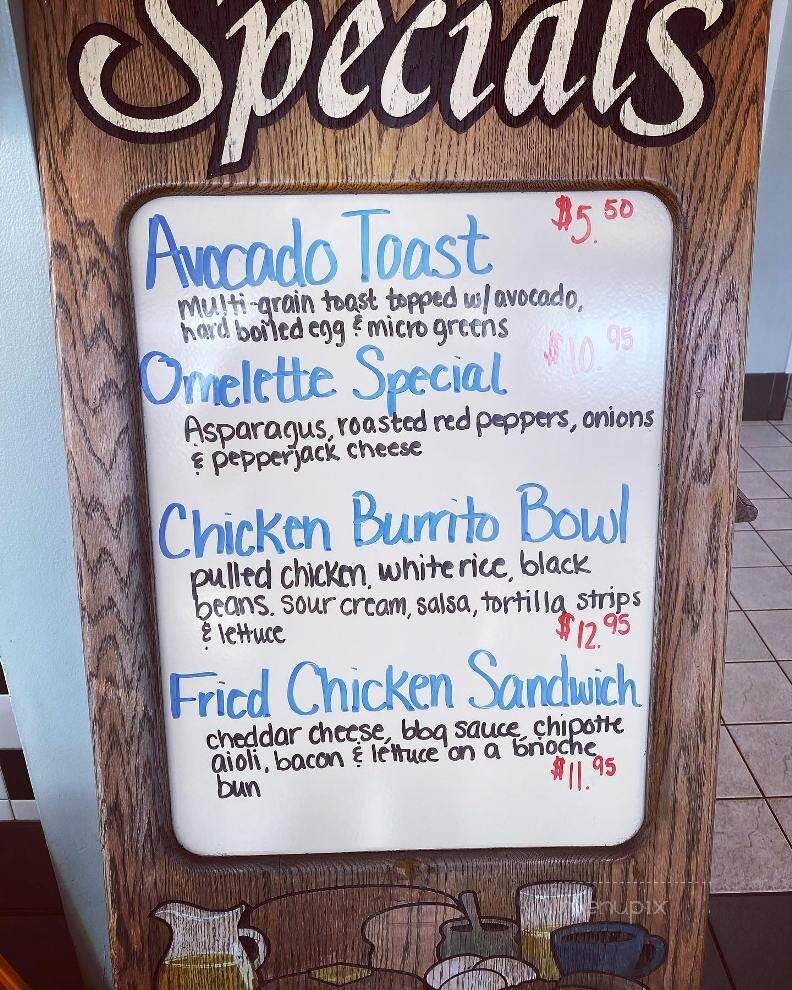 Specials
Avocado Toast $5.50
multi-grain toast topped w/ avocado,
hard boiled egg & micro greens
Omelette Special $10.95
Asparagus, roasted red peppers, onions
& pepperjack cheese
Chicken Burrito Bowl
pulled chicken, white rice, black
beans, sour cream, salsa, tortilla strips
& lettuce $12.95
Fried Chicken Sandwich
cheddar cheese, bbq sauce, chipotle
aioli, bacon & lettuce on a brioche
bun $11.95
menupix